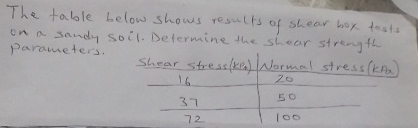 The table below shows results of shear box tests
on a sandy soil. Determine the shear strength
parameters.
Shear stress (kPa) Normal stress (kPa)
16 20
37 50
72 100